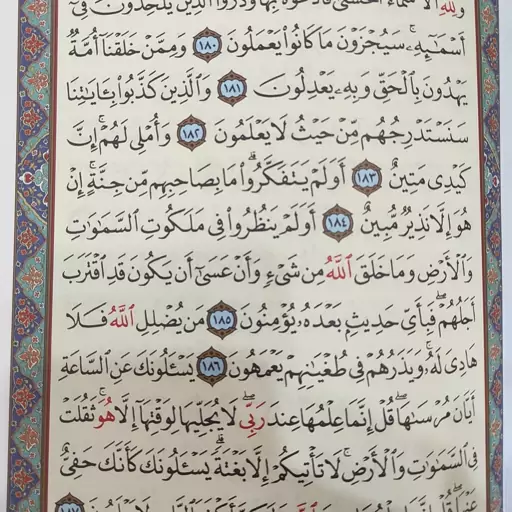 وَلِلَّهِ ٱلْأَسْمَآءُ ٱلْحُسْنَىٰ فَٱدْعُوهُ بِهَا وَذَرُوا۟ ٱلَّذِينَ يُلْحِدُونَ فِىٓ
أَسْمَـٰٓئِهِۦ ۚ سَيُجْزَوْنَ مَا كَانُوا۟ يَعْمَلُونَ ١٨٠ وَمِمَّنْ خَلَقْنَآ أُمَّةٌ
يَهْدُونَ بِٱلْحَقِّ وَبِهِۦ يَعْدِلُونَ ١٨١ وَٱلَّذِينَ كَذَّبُوا۟ بِـَٔايَـٰتِنَا
سَنَسْتَدْرِجُهُم مِّنْ حَيْثُ لَا يَعْلَمُونَ ١٨٢ وَأُمْلِى لَهُمْ ۚ إِنَّ
كَيْدِى مَتِينٌ ١٨٣ أَوَلَمْ يَتَفَكَّرُوا۟ ۗ مَا بِصَاحِبِهِم مِّن جِنَّةٍ ۚ إِنْ
هُوَ إِلَّا نَذِيرٌ مُّبِينٌ ١٨٤ أَوَلَمْ يَنظُرُوا۟ فِى مَلَكُوتِ ٱلسَّمَـٰوَٰتِ
وَٱلْأَرْضِ وَمَا خَلَقَ ٱللَّهُ مِن شَىْءٍ وَأَنْ عَسَىٰٓ أَن يَكُونَ قَدِ ٱقْتَرَبَ
أَجَلُهُمْ ۖ فَبِأَىِّ حَدِيثٍۭ بَعْدَهُۥ يُؤْمِنُونَ ١٨٥ مَن يُضْلِلِ ٱللَّهُ فَلَا
هَادِىَ لَهُۥ ۚ وَيَذَرُهُمْ فِى طُغْيَـٰنِهِمْ يَعْمَهُونَ ١٨٦ يَسْـَٔلُونَكَ عَنِ ٱلسَّاعَةِ
أَيَّانَ مُرْسَىٰهَا ۖ قُلْ إِنَّمَا عِلْمُهَا عِندَ رَبِّى ۖ لَا يُجَلِّيهَا لِوَقْتِهَآ إِلَّا هُوَ ۚ ثَقُلَتْ
فِى ٱلسَّمَـٰوَٰتِ وَٱلْأَرْضِ ۚ لَا تَأْتِيكُمْ إِلَّا بَغْتَةً ۗ يَسْـَٔلُونَكَ كَأَنَّكَ حَفِىٌّ
عَنْهَا ۖ قُلْ إِنَّمَا ١٨٧